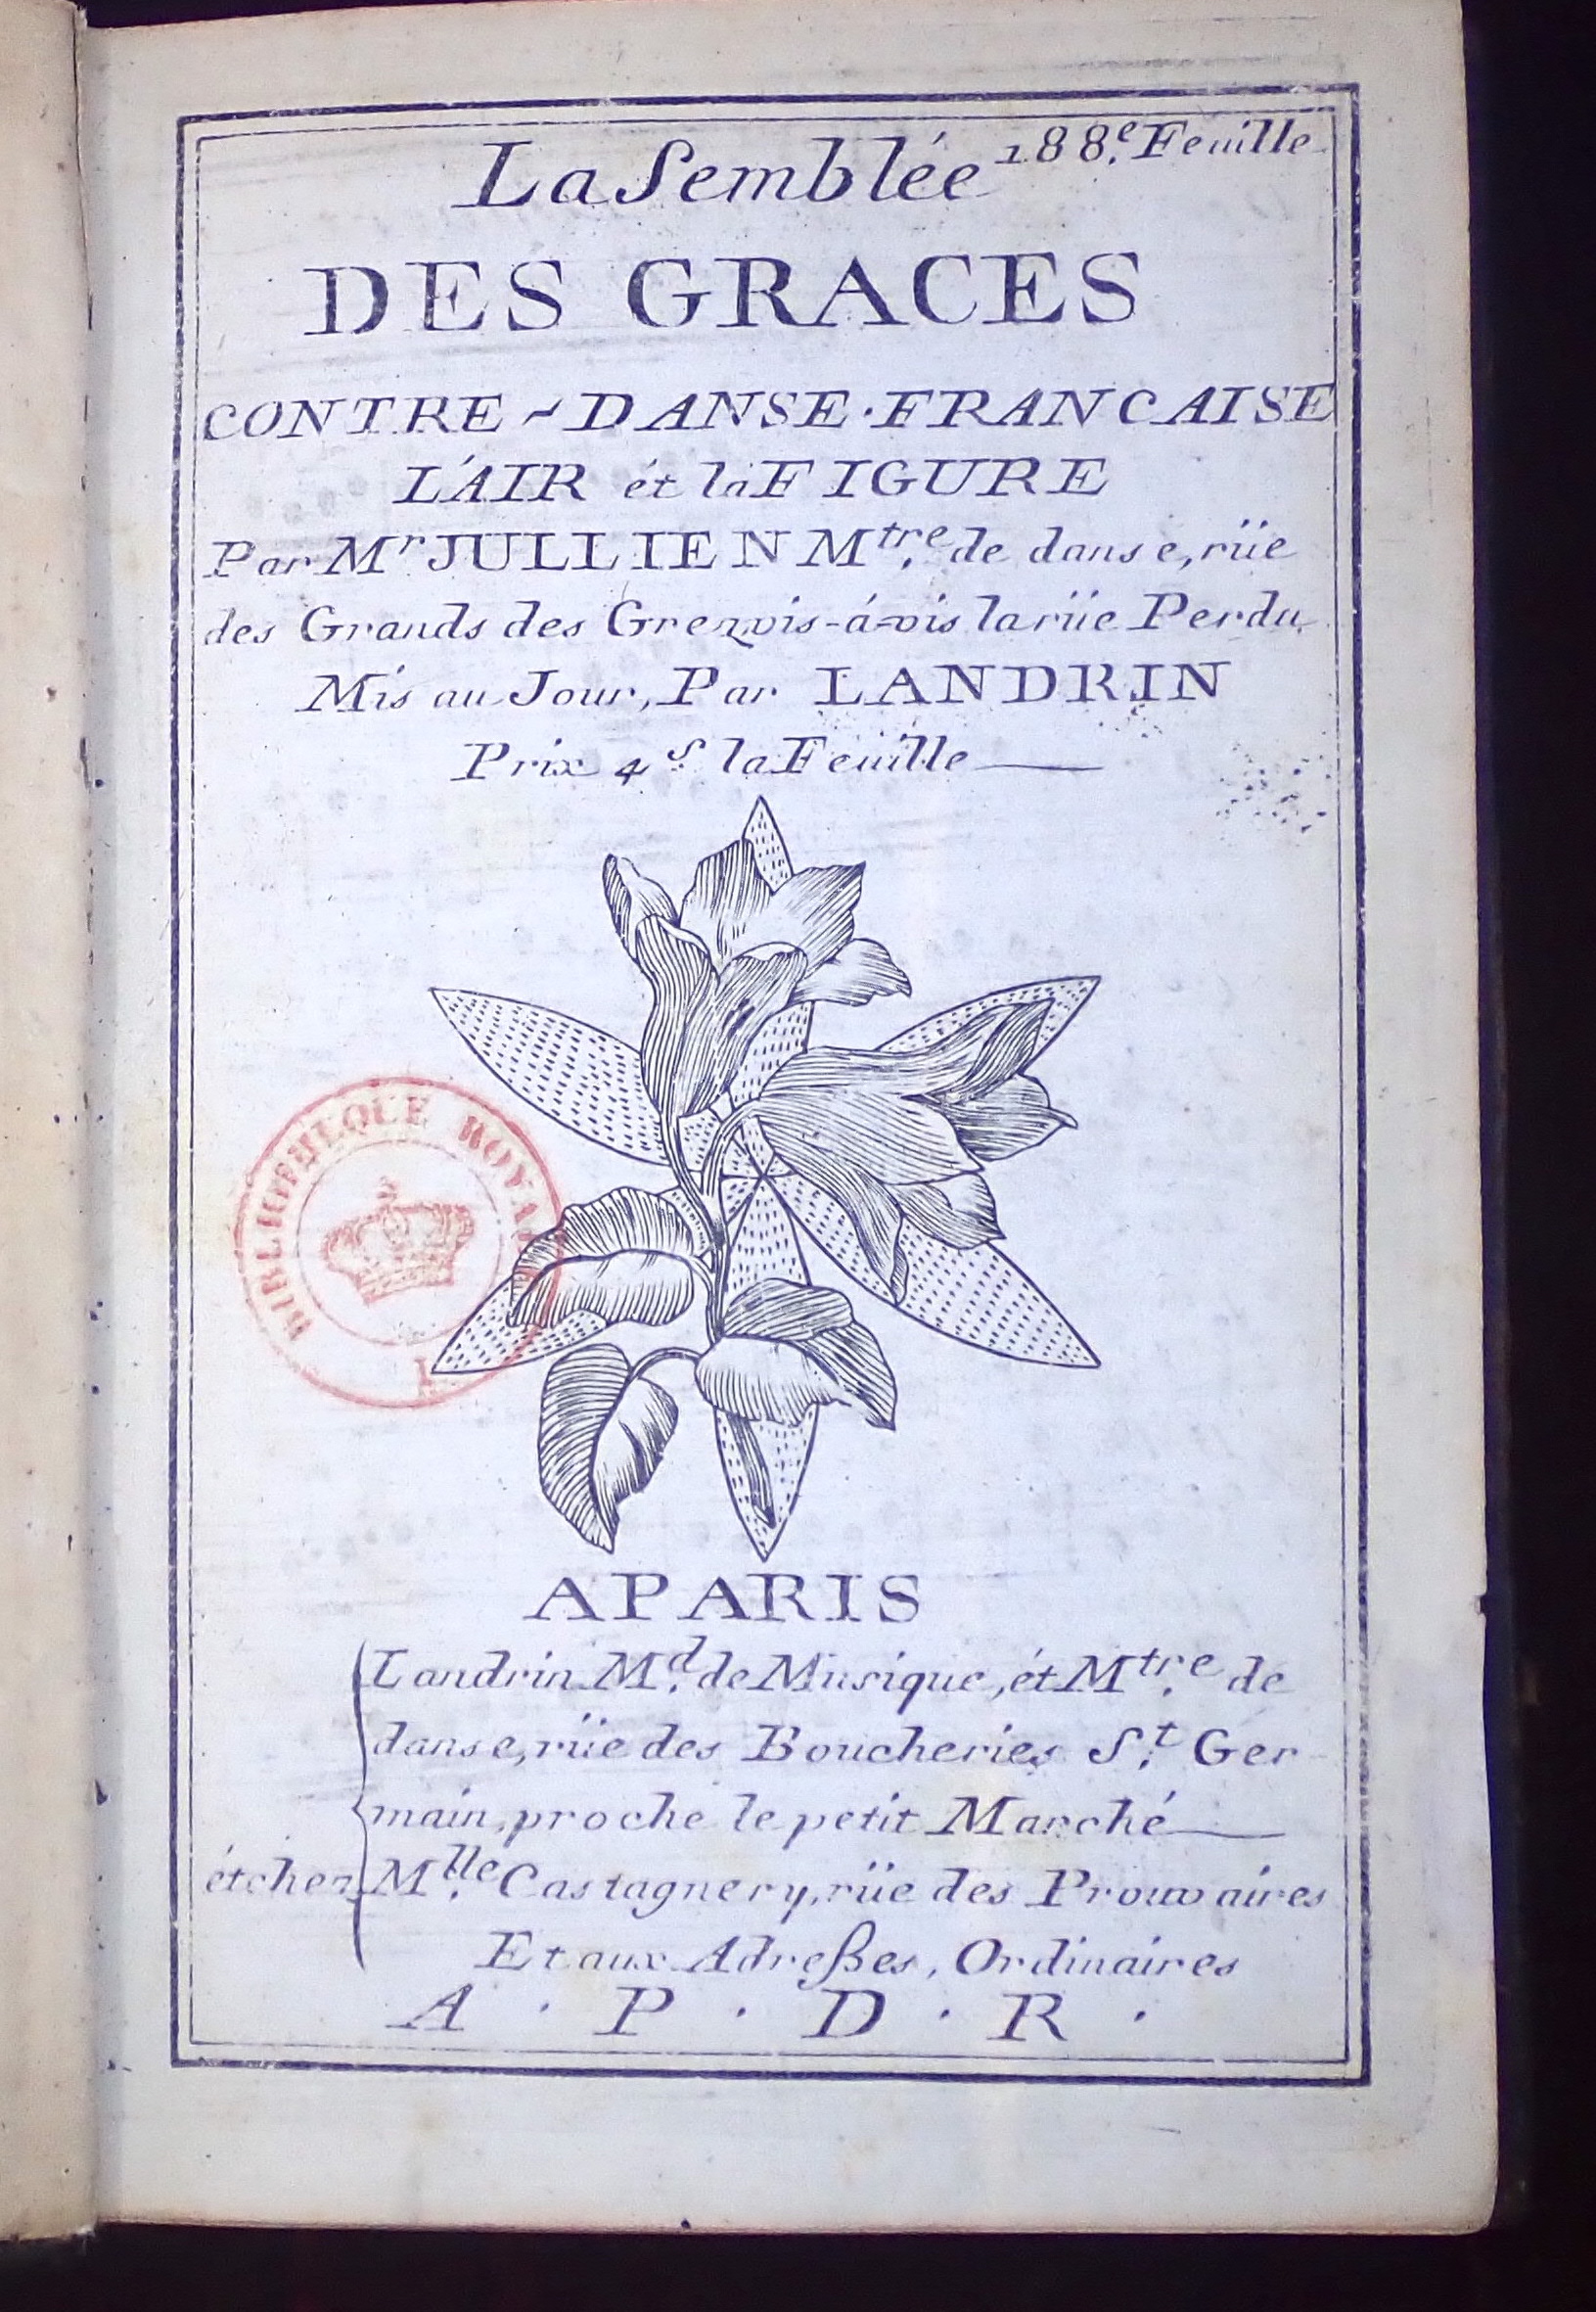 188.e Feuille
La Semblée
DES GRACES
CONTRE-DANSE·FRANCAISE
L'AIR ét la FIGURE
Par Mr JULLIEN Mtre. de danse, rüe
des Grands des Grez vis-á-vis la rüe Perdu
Mis au Jour, Par LANDRIN
Prix 4 s. la Feüille
BIBLIOTHEQUE ROYAL
A PARIS
Landrin Md. de Musique, ét Mtre. de
danse, rüe des Boucheries St. Ger
main, proche le petit Marché
ét chez Mlle. Castagnery, rüe des Prouvaires
Et aux Adreßes, Ordinaires
A · P · D · R ·